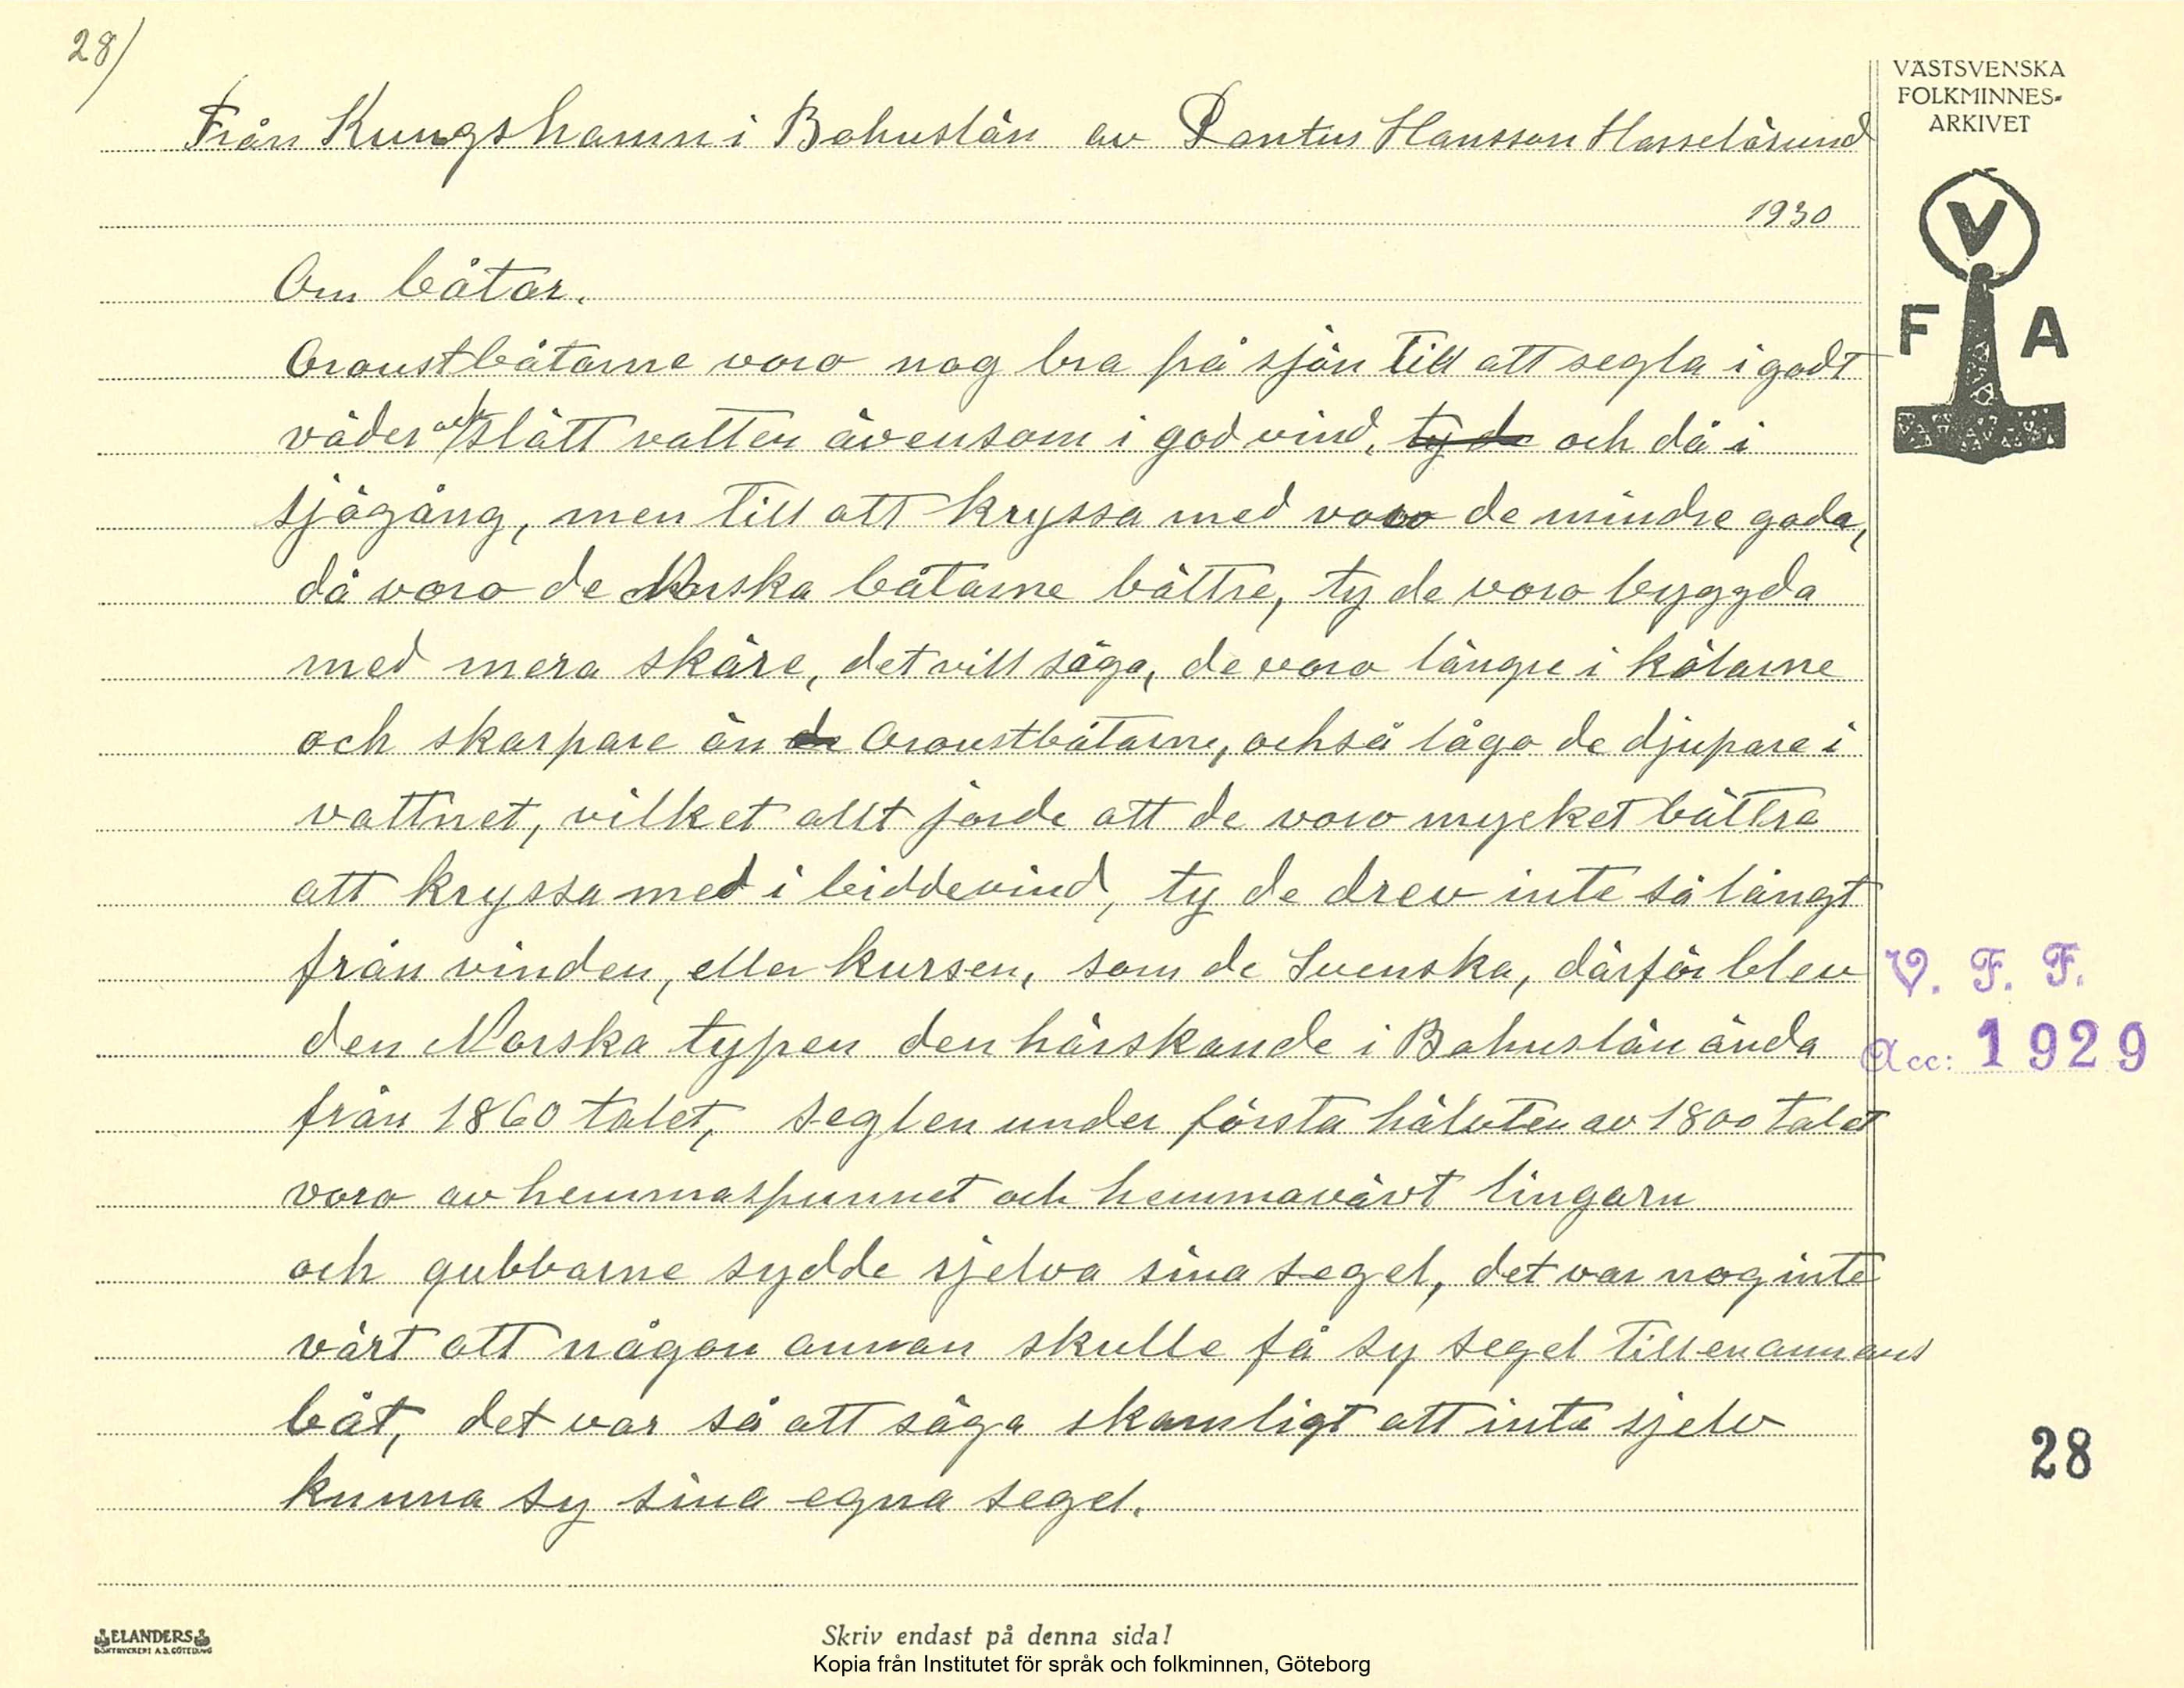 28/
Från Kungshamn i Bohuslän av Pontus Hansson Hasselösund
1930
Om båtar.
Oroustbåtarne voro nog bra på sjön till att segla i godt
väder och slätt vatten ävensom i god vind, ty de och då i
sjögång, men till att kryssa med voro de mindre goda,
då voro de Norska båtarne bättre, ty de voro byggda
med mera skäre, det vill säga, de voro längre i kölarne
och skarpare än de Oroustbåtarne, ochså lågo de djupare i
vattnet, vilket allt jorde att de voro mycket bättre
att kryssa med i biddevind, ty de drev inte så långt
från vinden, eller kursen, som de Svenska, därför blev
den Norska typen den härskande i Bohuslän ända
från 1860 talet, seglen under första hälvten av 1800 talet
voro av hemmaspunnet och hemmavävt lingarn
och gubbarne sydde sjelva sina segel, det var nog inte
värt att någon annan skulle få sy segel till en annans
båt, det var så att säga skamligt att inte sjelv
kunna sy sina egna segel.
VÄSTSVENSKA
FOLKMINNES-
ARKIVET
V
F A
V. F. F.
Acc: 1929
28
ELANDERS
BOKTRYCKERI A.B. GÖTEBORG
Skriv endast på denna sida!
Kopia från Institutet för språk och folkminnen, Göteborg